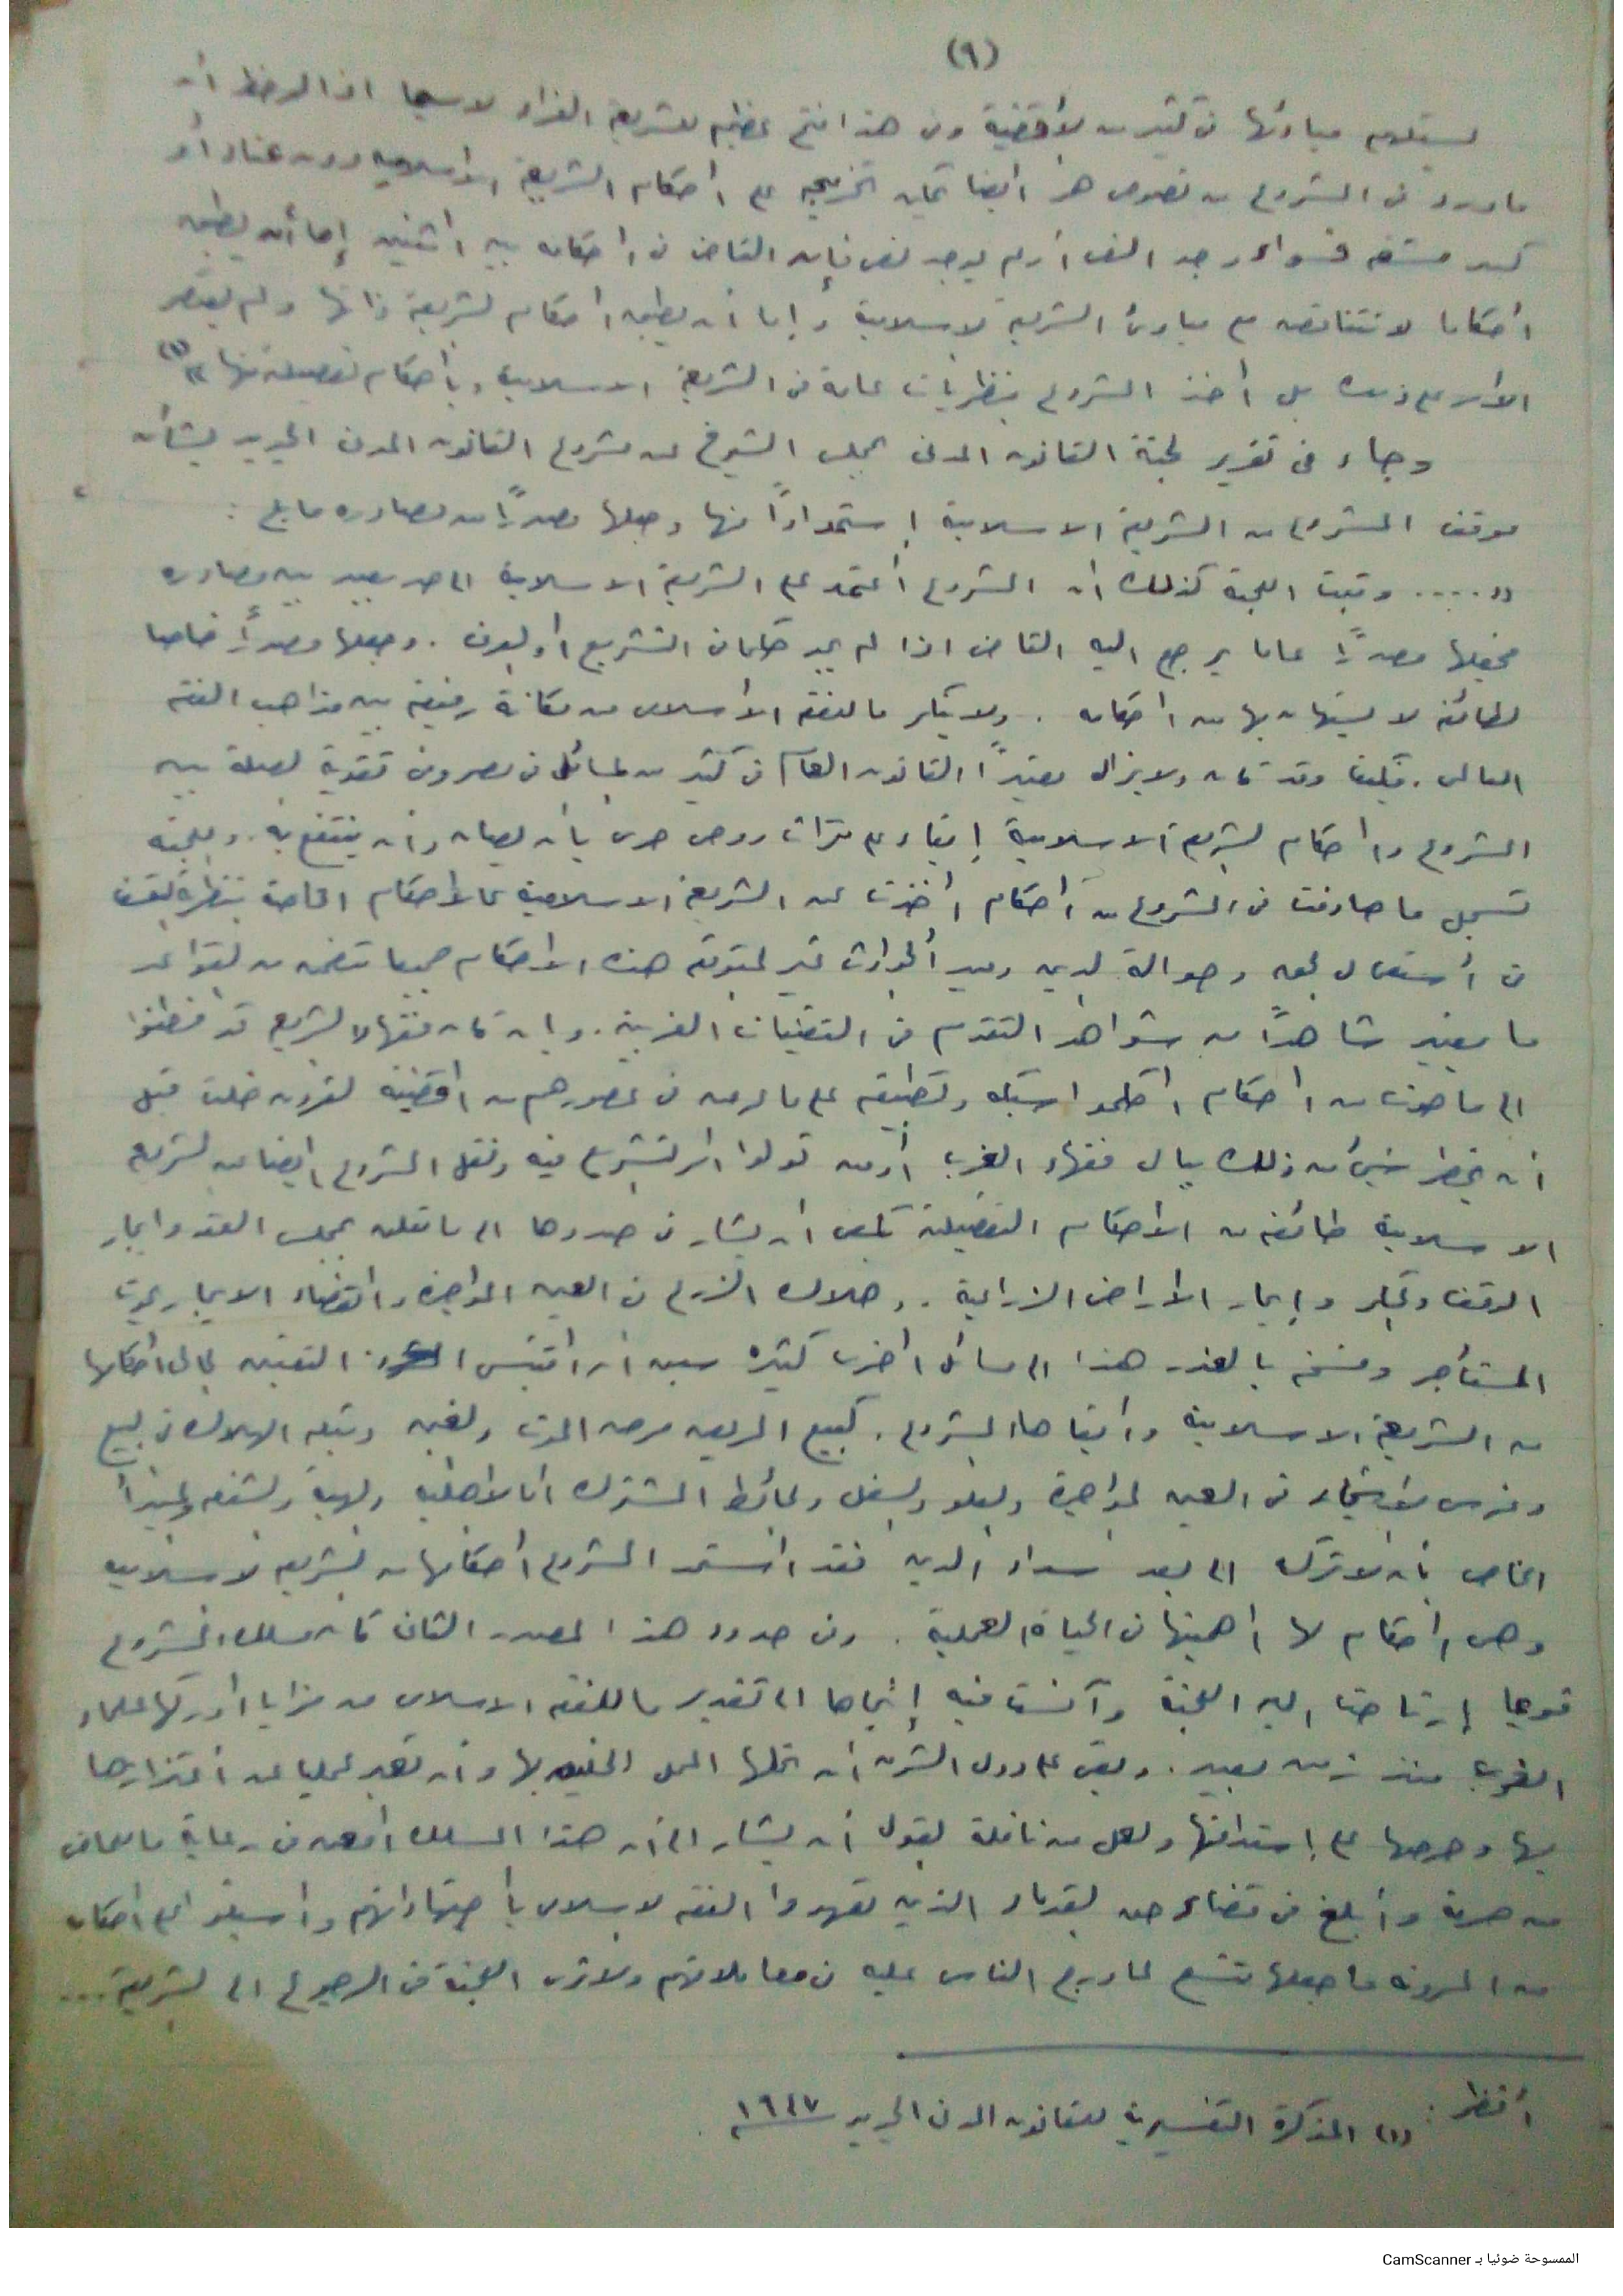 (٩)
ليستلهم مبادئها في كثير من الأقضية وفى هذا فتح عظيم للشريعة الغراء لاسيما اذا لوحظ أن
ما ورد في المشروع من نصوص هو ايضا يمكن تخريجه على احكام الشريعة الاسلامية دون عناء أو
كبير مشقه فسواء وجد النص أو لم يوجد نص فإن القاضى فى احكامه بين اثنين إما أن يطبق
أحكاما لا تتناقض مع مبادئ الشريعة الاسلامية وإما أن يطبق احكام الشريعة ذاتها ولم يقتصر
الامر على ذلك بل أخذ المشروع بنظريات عامة فى الشريعة الاسلامية وبأحكام تفصيلية منها (١)
وجاء فى تقرير لجنة القانون المدنى بمجلس الشيوخ عن مشروع القانون المدنى الجديد بشأن
موقف المشروع من الشريعة الاسلامية إستمداداً منها وجعلها مصدراً من مصادره ما يلى :
« ..... وتبينت اللجنة كذلك ان المشروع أعتمد على الشريعة الاسلامية الى حد بعيد بين مصادره
فجعلها مصدراً عاما يرجع اليه القاضى اذا لم يجد حكما فى التشريع او العرف . وجعلها مصدراً خاصا
لطائفة لا يستهان بها من احكامه . ولا ينكر ما للفقه الاسلامى من مكانة رفيعة بين مذاهب الفقه
العالمى . فكيف وقد كان ولا يزال معتبراً القانون العام فى كثير من المسائل فى مصر وفى تقوية الصلة بين
المشروع واحكام الشريعة الاسلامية إبقاء على تراث روحى حرى بأن يصان وأن ينتفع به . واللجنة
تسجل ما صادفت فى المشروع من أحكام أخذت عن الشريعة الاسلامية كالاحكام الخاصة بنظرية التعسف
فى أستعمال الحق وحوالة الدين ومبدأ الحوادث غير المتوقعة هذه الاحكام جميعا تتضمن من القواعد
ما يعتبر شاهداً من شواهد التقدم فى التقنينات الغربية . وإن كان فقهاء الشريعة قد فطنوا
الى ما حوت من احكام احكموا سبكه وتطبيقه على ما عرض فى عصورهم من اقضية لقرون خلت قبل
أن يخطر شئ من ذلك ببال فقهاء الغرب أو من تولوا امر التشريع فيه ونقل المشروع ايضا عن الشريعة
الاسلامية طائفة من الاحكام التفصيلية يكفى ان يشار فى صددها الى ما تعلق بمجلس العقد وايجار
الوقف والحكر وإيجار الاراضى الزراعية . وهلاك الزرع فى العين المؤجرة وانقضاء الايجار بموت
المستأجر وفسخه بالعذر هذا الى مسائل اخرى كثيره سبق ان اقتبس التقنين الحالى احكامها
من الشريعة الاسلامية وابقاها المشروع . كبيع المريض مرض الموت والغبن وتبعة الهلاك فى البيع
وغرس الاشجار فى العين المؤجرة والعلو والسفل والحائط المشترك اما الاهلية والهبة والشفعة والمبدأ
الخاص بأن لا تركة الا بعد سداد الدين فقد استمد المشروع أحكامها من الشريعة الاسلامية
وهى احكام لها اهميتها فى الحياة العملية . وفى حدود هذا المصدر الثالث كان مسلك المشروع
قويما إرتاحت اليه اللجنة وآنست فيه إتجاها الى تقدير ما للفقه الاسلامى من مزايا ادركها علماء
الغرب منذ زمن بعيد . وبقى على دول الشرق أن تحلها المحل الخليق بها وأن تعبر عمليا عن أعتزازها
بها وحرصها على إستدامتها ولعل من نافلة القول أن يشار الى أن هذا المسلك امعن فى رعاية ما للماضى
من حرمة وأبلغ فى قضاء حق القدماء الذين تعهدوا الفقه الاسلامى بأجتهاداتهم واسبغوا على احكامه
من المرونة ما جعلها تتسع لما درج الناس عليه فى معاملاتهم ولا ترى اللجنة فى الرجوع الى الشريعة ...
أنظر :
(١) المذكرة التفسيرية للقانون المدنى الجديد ١٩٤٧
الممسوحة ضوئيا بـ CamScanner